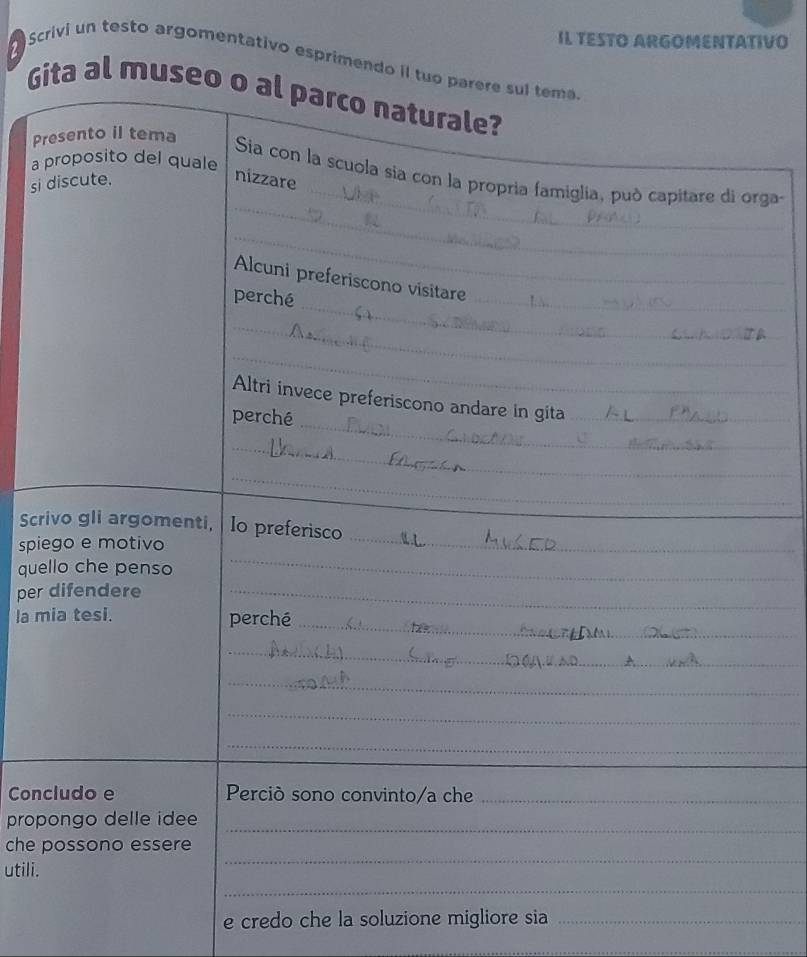 IL TESTO ARGOMENTATIVO
2 Scrivi un testo argomentativo esprimendo il tuo parere sul tema.
Gita al museo o al parco naturale?
Presento il tema
a proposito del quale
si discute.
Sia con la scuola sia con la propria famiglia, può capitare di orga-
nizzare UNA GITA AL PARCO
O AL MUSEO
Alcuni preferiscono visitare IL MUSEO
perché SI
Altri invece preferiscono andare in gita AL PARCO
perché PUOI GIOCARE
Scrivo gli argomenti,
spiego e motivo
quello che penso
per difendere
la mia tesi.
Io preferisco IL MUSEO
perché CI
A UNA
Concludo e
propongo delle idee
che possono essere
utili.
Perciò sono convinto/a che
e credo che la soluzione migliore sia